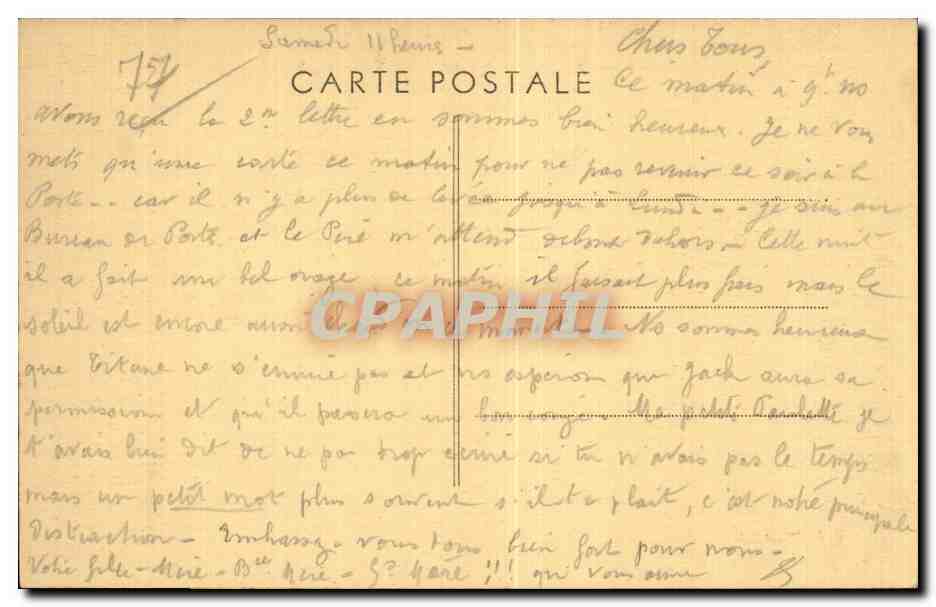 Samedi 11 heures -
Chers Tous,
77
CARTE POSTALE
Ce matin à 9h ns
avons reçu la 2me lettre en sommes bien heureux. Je ne vous
mets qu'une carte ce matin pour ne pas revenir ce soir à la
Poste -- car il n'y a plus de levée jusqu'à Lundi -- je suis au
Bureau de Poste et le Père m'attend debout dehors - Cette nuit
il a fait un bel orage ce matin il faisait plus frais mais le
CPAPHIL
soleil est encore aussi No sommes heureux
que Titane ne s'ennuie pas et ns espérons que Jack aura sa
permission et qu'il passera un bon congé. Ma petite Paulette je
t'avais bien dit de ne pas trop écrire si tu n'avais pas le temps
mais un petit mot plus souvent s'il te plait, c'est notre principale
Distraction - Embrassez-vous tous bien fort pour nous -
Votre Mère - Belle Mère - Gd Mère !!! qui vous aime